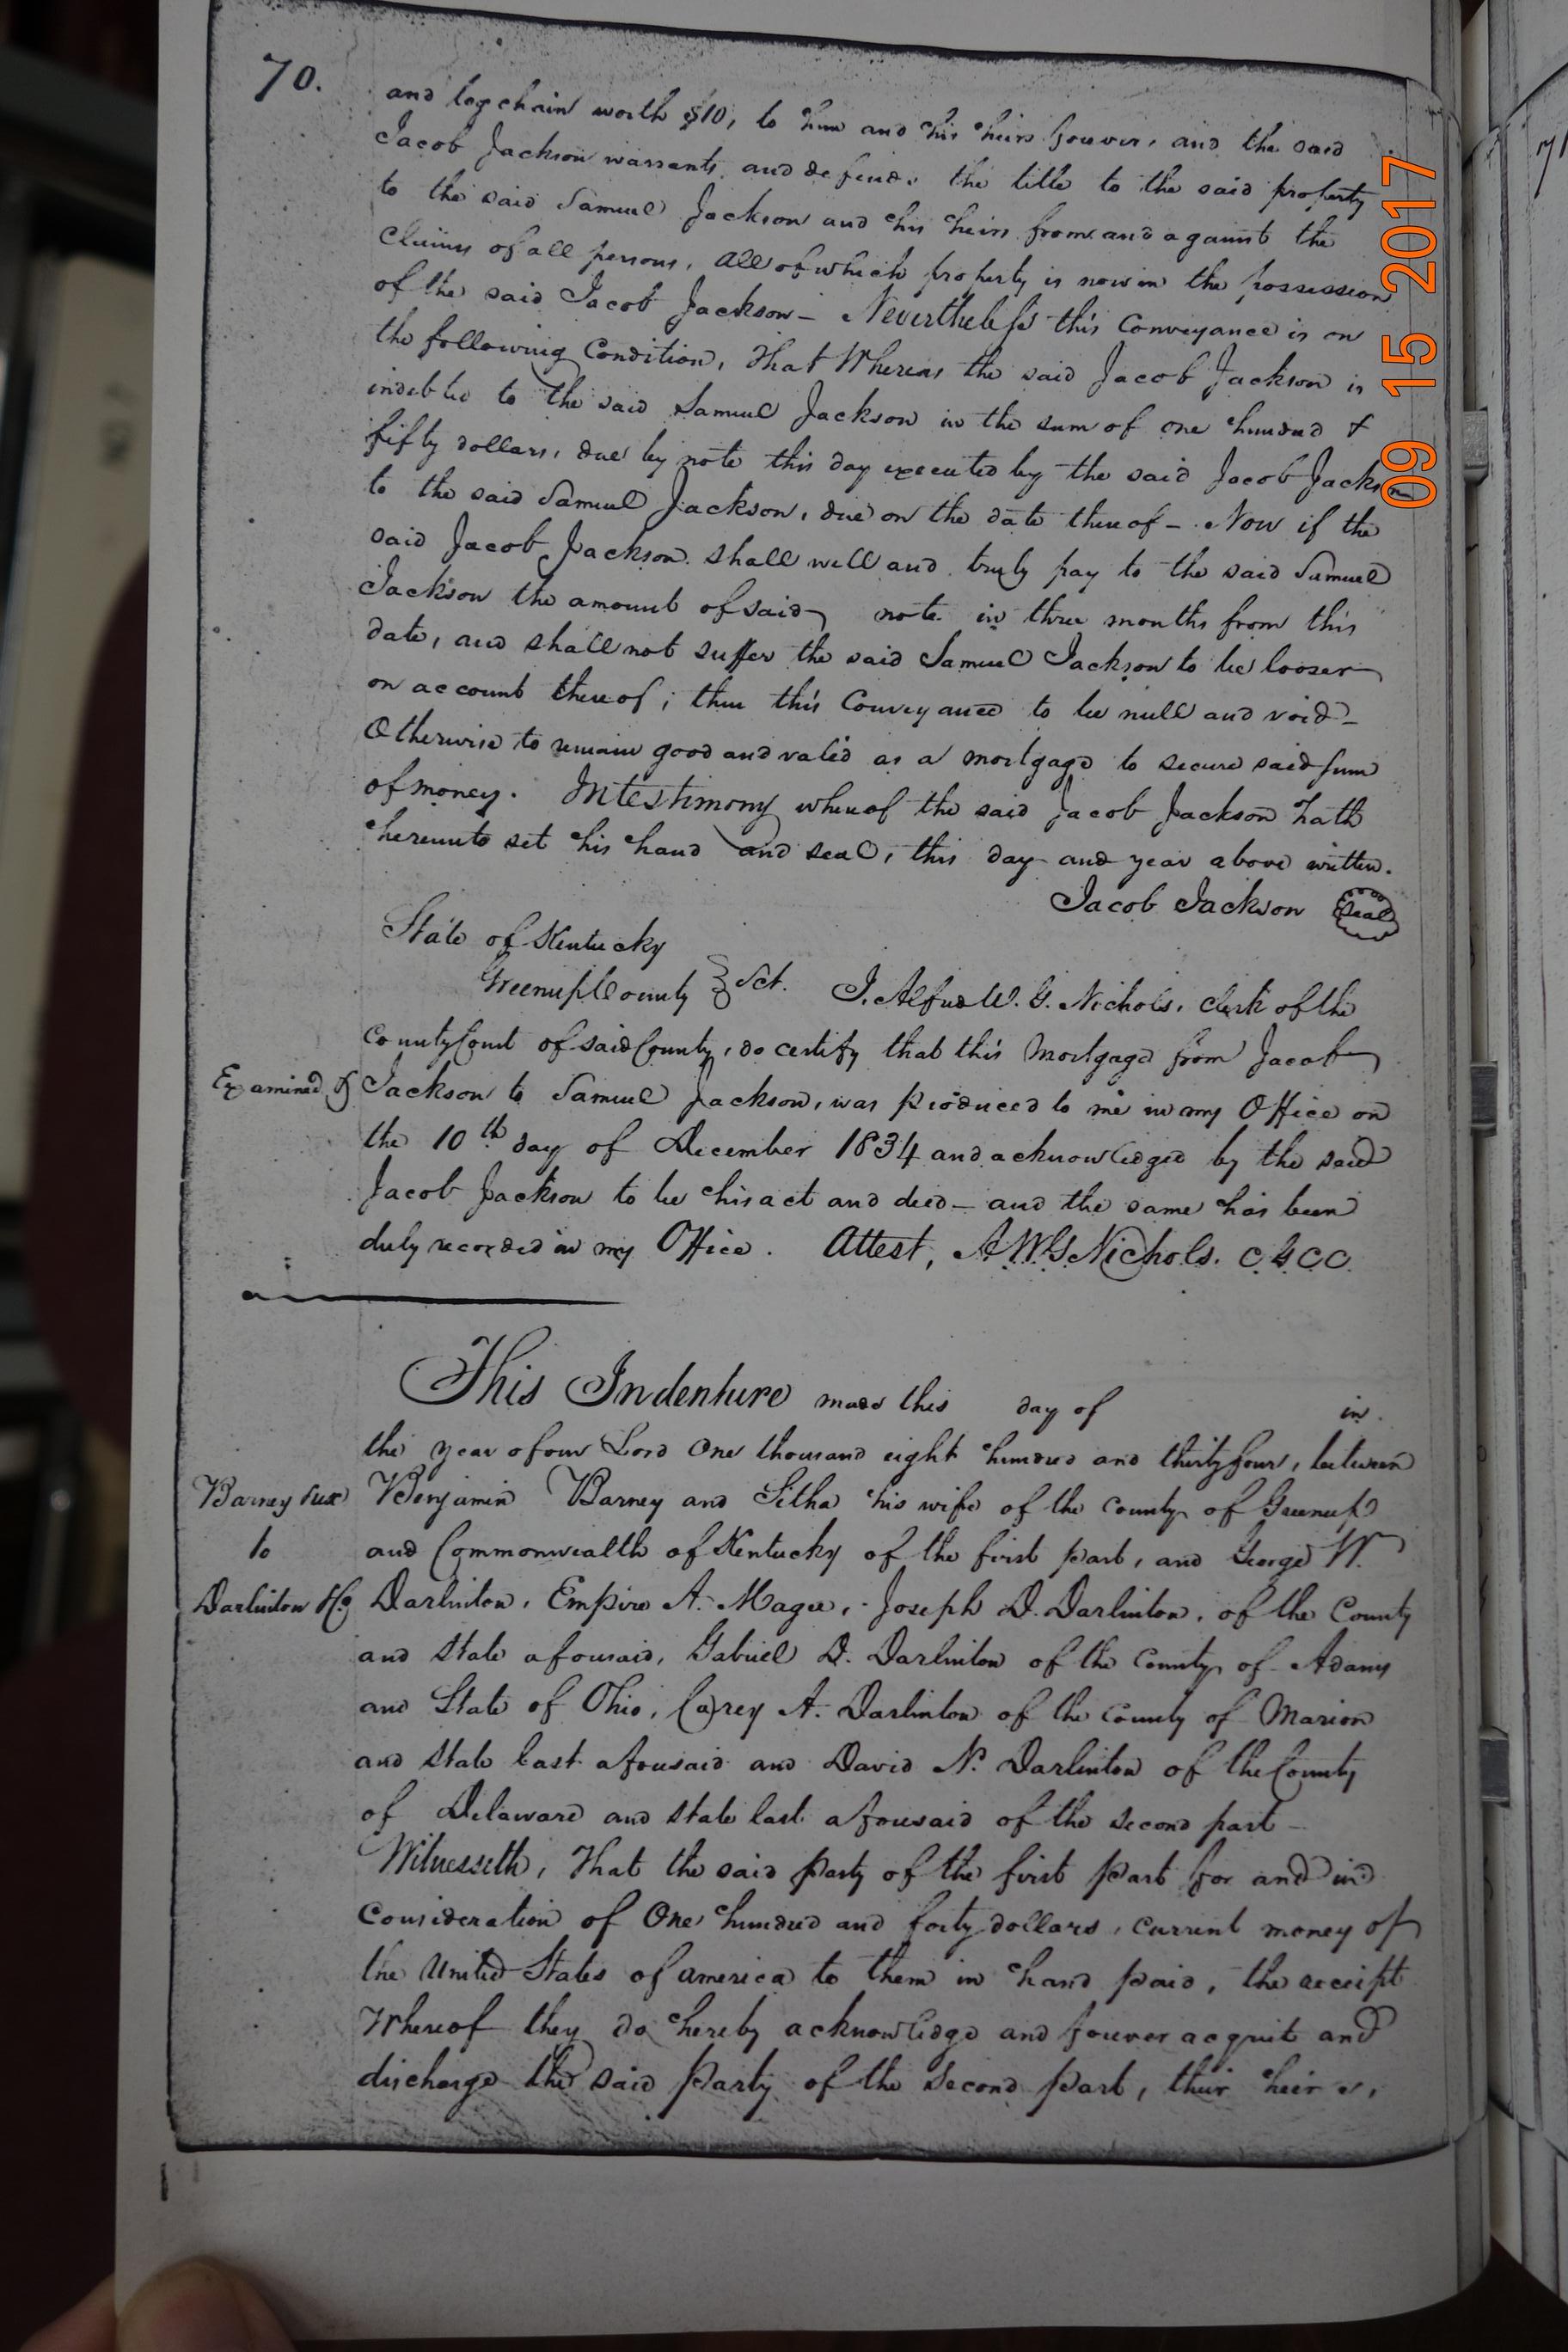 70.
and log chain worth $10, to him and his heirs forever, and the said
Jacob Jackson warrants and defends the title to the said property
to the said Samuel Jackson and his heirs from and against the
claims of all persons, all of which property is now in the possession
of the said Jacob Jackson – Nevertheless this Conveyance is on
the following Condition, That Whereas the said Jacob Jackson is
indebted to the said Samuel Jackson in the sum of one hundred &
fifty dollars, due by note this day executed by the said Jacob Jackson
to the said Samuel Jackson, due on the date thereof – Now if the
said Jacob Jackson shall well and truly pay to the said Samuel
Jackson the amount of said note in three months from this
date, and shall not suffer the said Samuel Jackson to be looser
on account thereof; then this Conveyance to be null and void –
Otherwise to remain good and valid as a mortgage to secure said sum
of money. In testimony whereof the said Jacob Jackson hath
hereunto set his hand and seal, this day and year above written.
Jacob Jackson Seal
State of Kentucky
Greenup County Sct. I, Alfred W. G. Nichols, Clerk of the
County Court of said County, do certify that this Mortgage from Jacob
Examined Jackson to Samuel Jackson, was produced to me in my Office on
the 10th day of December 1834 and acknowledged by the said
Jacob Jackson to be his act and deed – and the same has been
duly recorded in my Office. Attest, A W G Nichols. C G C C
This Indenture made this day of in
the year of our Lord One thousand eight hundred and thirty four, between
Barney &ux Benjamin Barney and Litha his wife of the County of Greenup
to and Commonwealth of Kentucky of the first part, and George W.
Darlinton &c Darlinton, Empire A. Magee, Joseph D. Darlinton, of the County
and State aforesaid, Gabriel D. Darlinton of the County of Adams
and State of Ohio, Carey A. Darlinton of the County of Marion
and State last aforesaid and David N. Darlinton of the County
of Delaware and State last aforesaid of the second part –
Witnesseth, That the said Party of the first Part for and in
Consideration of One hundred and forty dollars, current money of
the United States of america to them in hand Paid, the receipt
Whereof they do hereby acknowledge and forever acquit and
discharge the said Party of the Second Part, their heirs,
09 15 2017
71